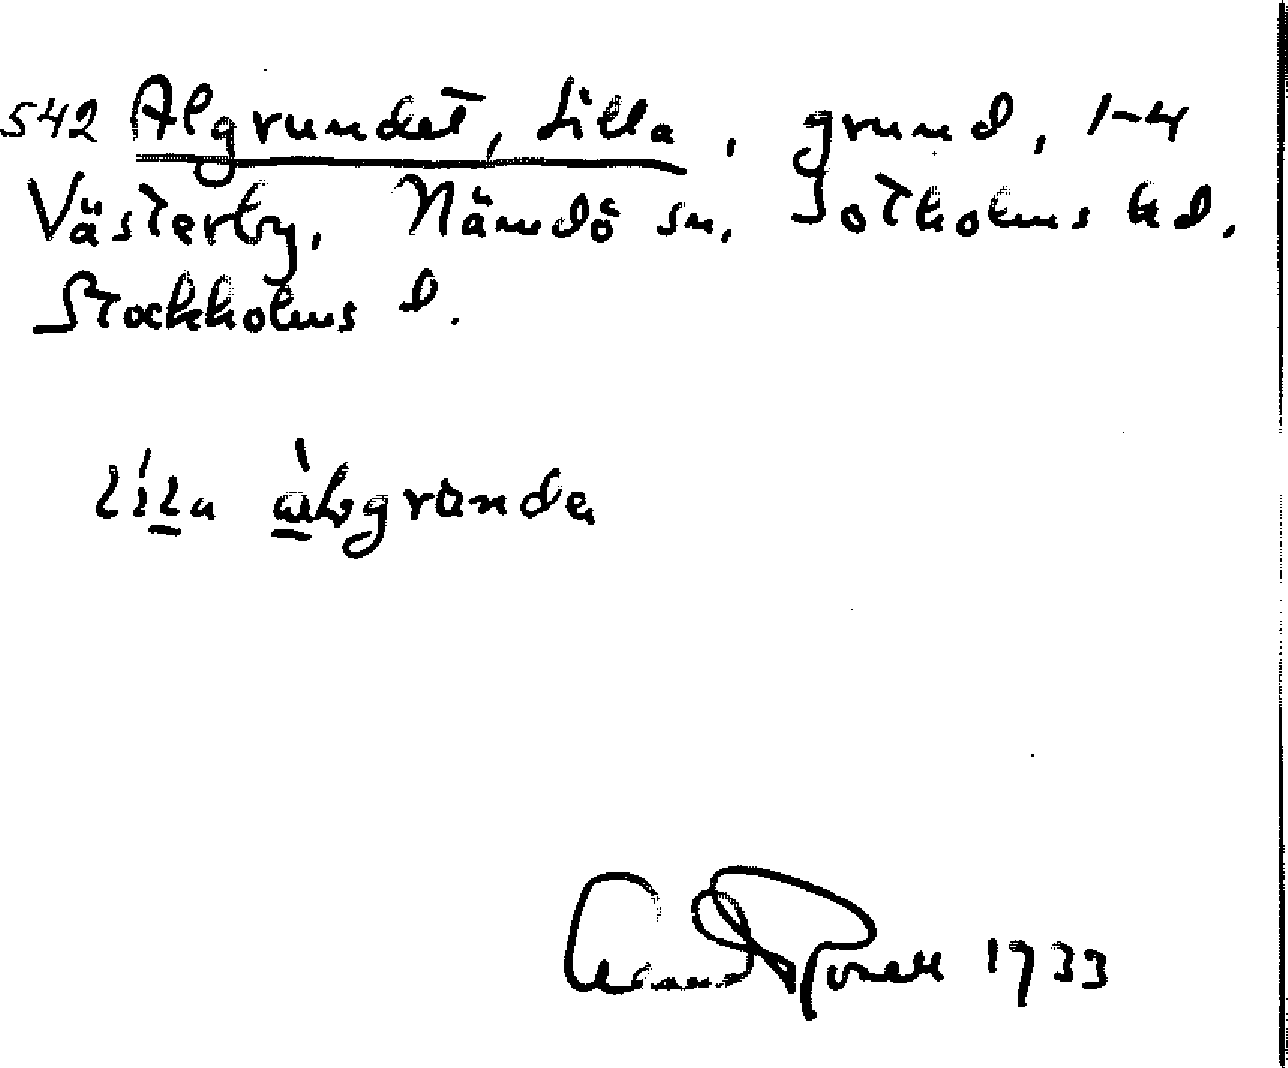 542 Algrundet, Lilla, grund, 1-4
Västerby, Nämdö sn, Sotholms hd.
Stockholms l.
1933